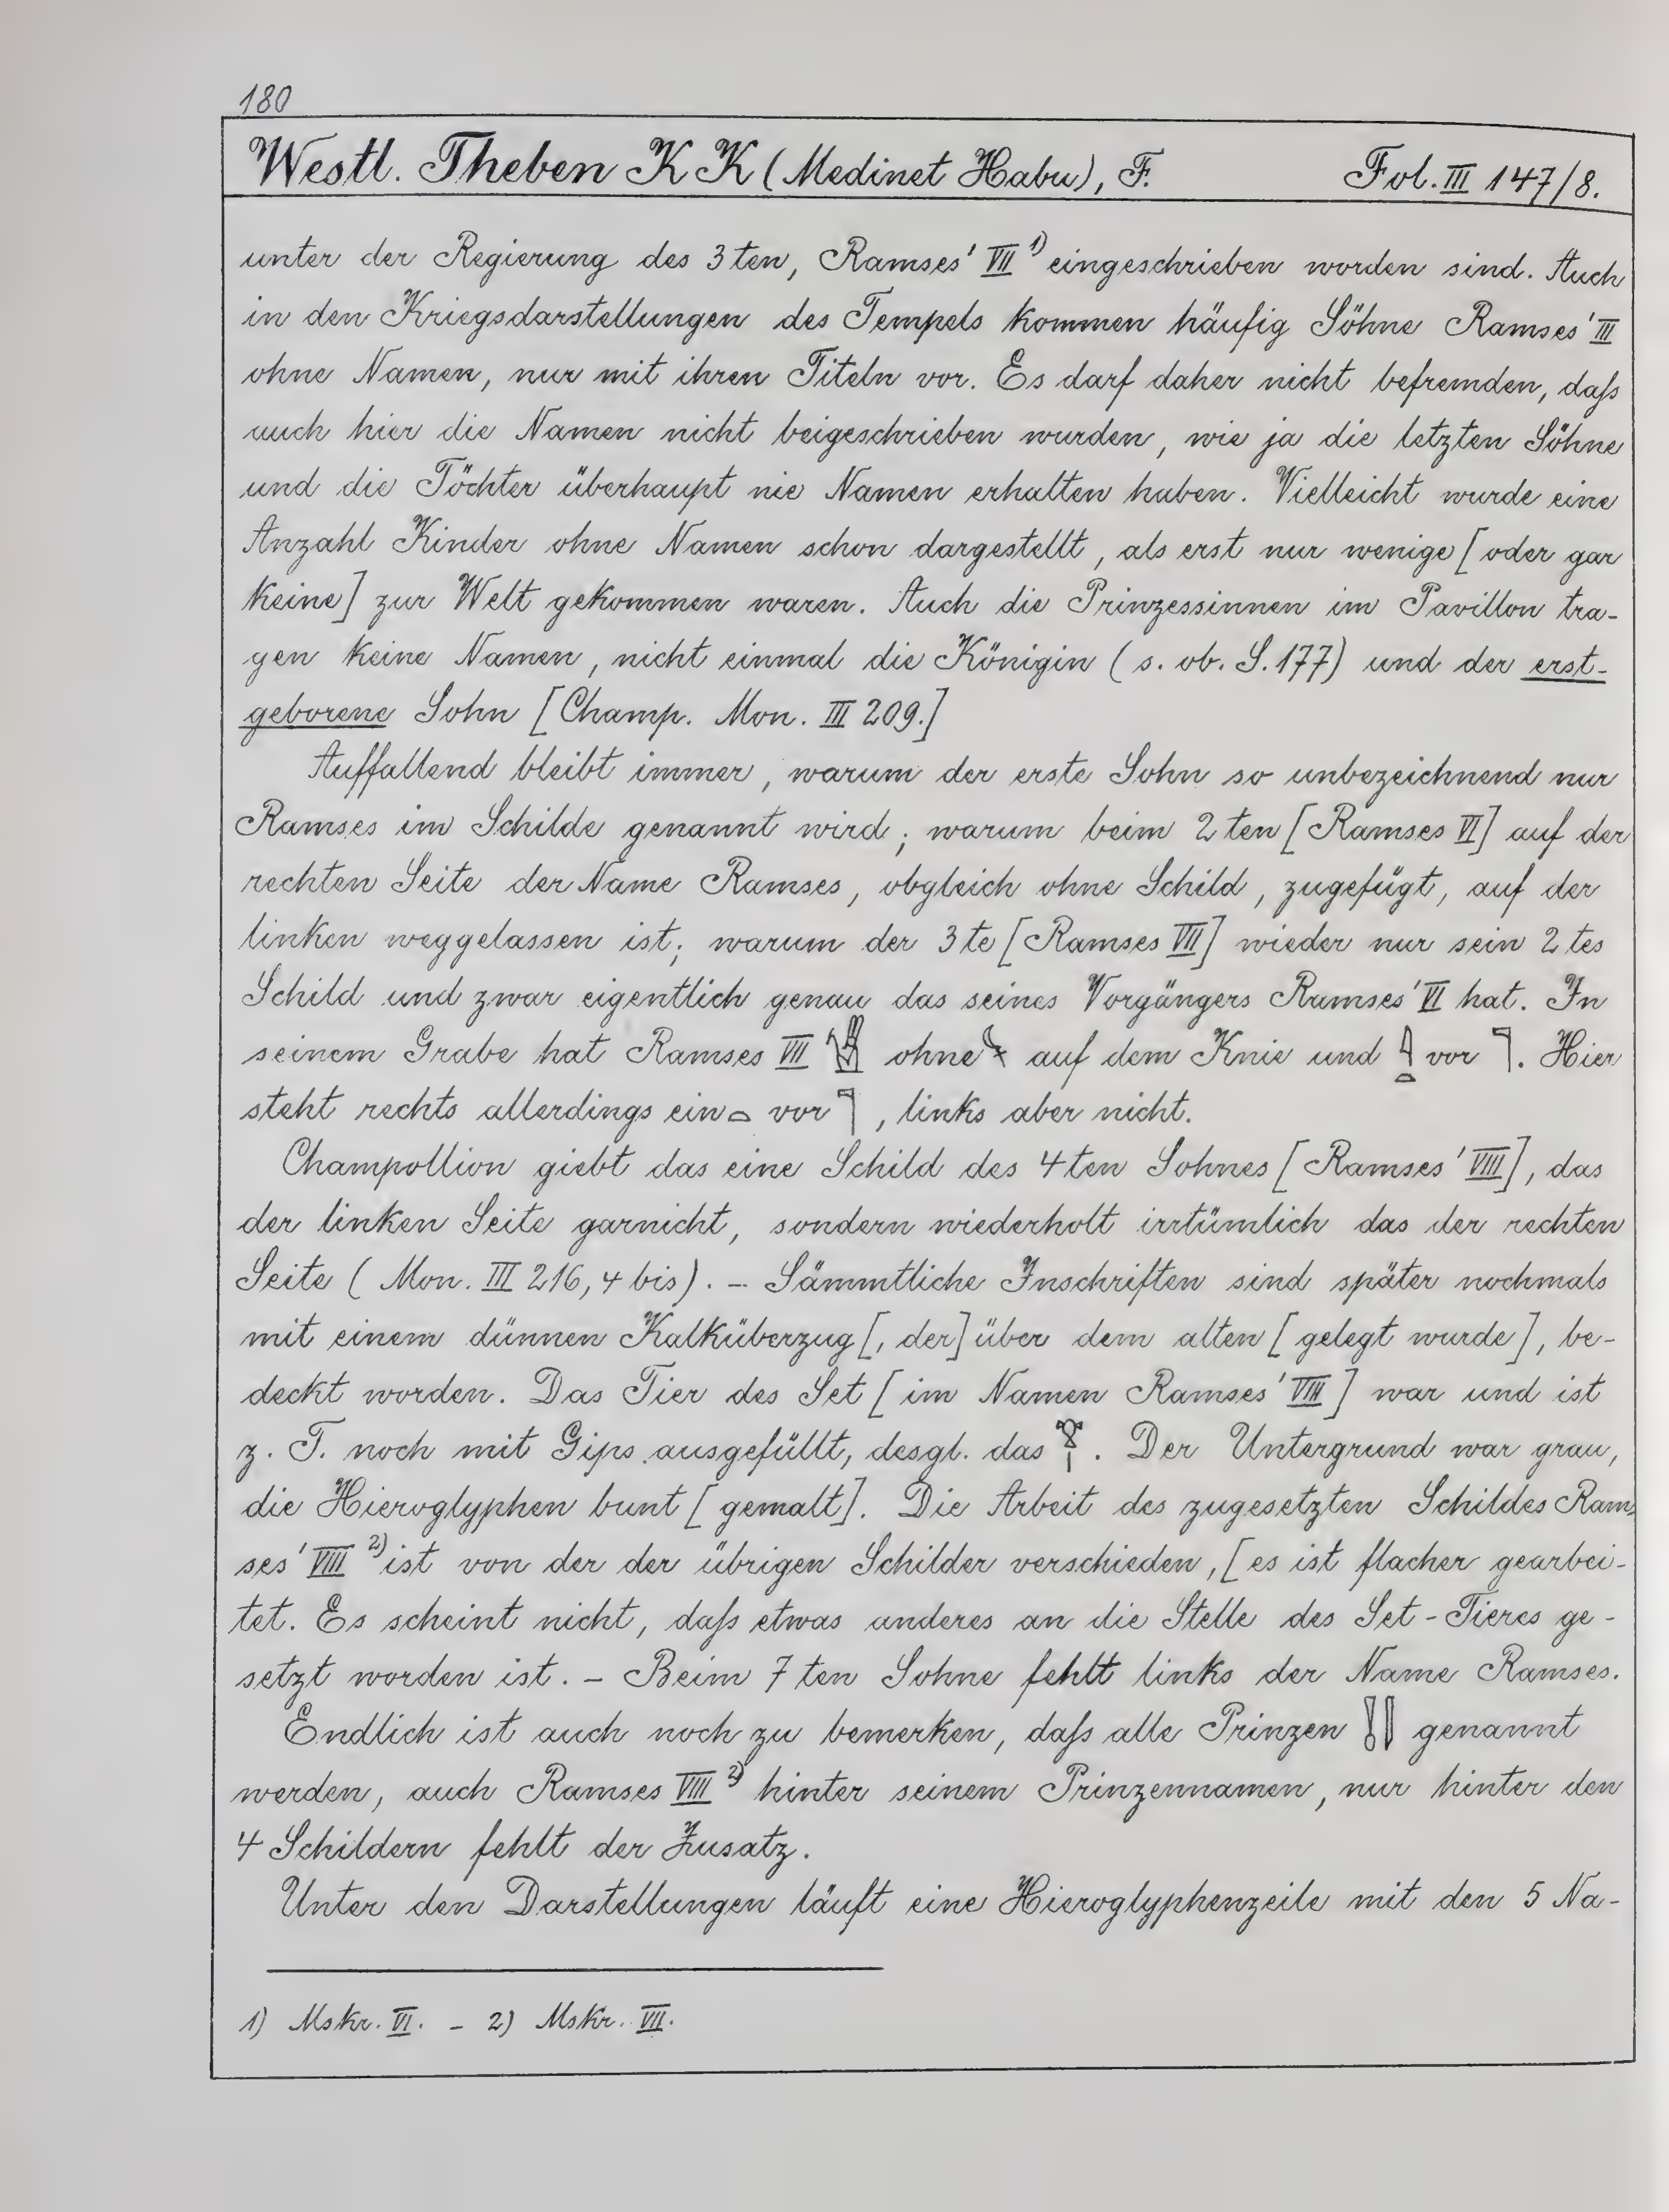 180
Westl. Theben KK (Medinet Habu), F. Fol. III 147/8.
unter der Regierung des 3ten, Ramses' VII 1) eingeschrieben worden sind. Auch
in den Kriegsdarstellungen des Tempels kommen häufig Söhne Ramses' III
ohne Namen, nur mit ihren Titeln vor. Es darf daher nicht befremden, daß
auch hier die Namen nicht beigeschrieben wurden, wie ja die letzten Söhne
und die Töchter überhaupt nie Namen erhalten haben. Vielleicht wurde eine
Anzahl Kinder ohne Namen schon dargestellt, als erst nur wenige [oder gar
keine] zur Welt gekommen waren. Auch die Prinzessinnen im Pavillon tra-
gen keine Namen, nicht einmal die Königin (s. ob. S. 177) und der erst-
geborene Sohn [Champ. Mon. III 209.]
Auffallend bleibt immer, warum der erste Sohn so unbezeichnend nur
Ramses im Schilde genannt wird; warum beim 2ten [Ramses VI] auf der
rechten Seite der Name Ramses, obgleich ohne Schild, zugefügt, auf der
linken weggelassen ist; warum der 3te [Ramses VII] wieder nur sein 2tes
Schild und zwar eigentlich genau das seines Vorgängers Ramses' VI hat. In
seinem Grabe hat Ramses VII ohne auf dem Knie und vor 𓊹. Hier
steht rechts allerdings ein 𓏏 vor 𓊹, links aber nicht.
Champollion giebt das eine Schild des 4ten Sohnes [Ramses' VIII], das
der linken Seite garnicht, sondern wiederholt irrtümlich das der rechten
Seite (Mon. III 216, 4 bis). – Sämmtliche Inschriften sind später nochmals
mit einem dünnen Kalküberzug [, der] über dem alten [gelegt wurde], be-
deckt worden. Das Tier des Set [im Namen Ramses' VIII] war und ist
z. T. noch mit Gips ausgefüllt, desgl. das . Der Untergrund war grau,
die Hieroglyphen bunt [gemalt]. Die Arbeit des zugesetzten Schildes Ram-
ses' VIII 2) ist von der der übrigen Schilder verschieden, [es ist flacher gearbei-
tet. Es scheint nicht, daß etwas anderes an die Stelle des Set-Tieres ge-
setzt worden ist. – Beim 7ten Sohne fehlt links der Name Ramses.
Endlich ist auch noch zu bemerken, daß alle Prinzen 𓐙𓊤 genannt
werden, auch Ramses VIII 2) hinter seinem Prinzennamen, nur hinter den
4 Schildern fehlt der Zusatz.
Unter den Darstellungen läuft eine Hieroglyphenzeile mit den 5 Na-
1) Mskr. VI. – 2) Mskr. VII.